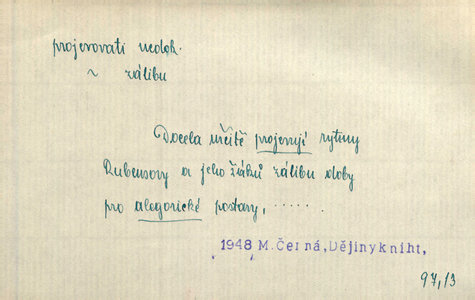 projevovati nedok.
~ zálibu
Docela určitě projevují rytiny
Rubensovy a jeho žáků zálibu doby
pro alegorické postavy, .....
1948 M. Černá, Dějiny kniht,
97,13